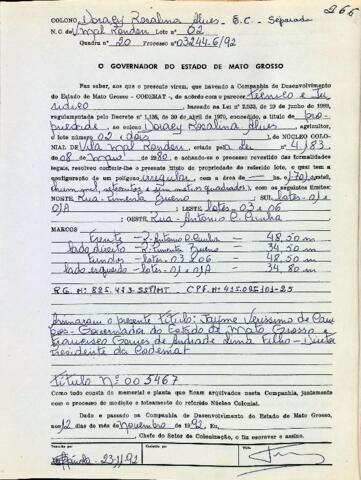 266
COLONO Doracy Rosalina Alves E.C. - Separada
N. C. de V. Mal Rondon Lote nº 02
Quadra nº 20 Processo nº 03244.6/92
O GOVERNADOR DO ESTADO DE MATO GROSSO
Faz saber, aos que o presente virem, que havendo a Companhia de Desenvolvimento
do Estado de Mato Grosso - CODEMAT -, de acordo com o parecer Técnico e Ju
rídico baseado na Lei nº
regulamentada pelo Decreto nº de 30 de abril de 1970, concedido, a título de pro
priedade ao colono Doracy Rosalina Alves agricultor,
o lote número 02 - dois do NÚCLEO COLO-
NIAL DE Vila Mal Rondon criado pela Lei nº 4.183
de 08 de Maio de 1980 e achando-se o processo revestido das formalidades
legais, resolveu conferir-lhe o presente título de propriedade do referido lote, o qual tem a
configuração de um polígono irregular com a área de — ha
com os seguintes limites:
NORTE Rua - Pimenta Bueno SUL lotes - 01 e
01A LESTE lotes 03 e 06
OESTE Rua - Antônio P. Cunha
MARCOS
Frente - R. Antônio P. Cunha — 48,50 m
lado direito - R. Pimenta Bueno — 34,50 m
fundos - lotes - 03 e 06 — 48,50 m
lado esquerdo - lotes - 01 e 01A — 34,80 m
Assinaram o presente Título: Jayme Veríssimo de Cam
pos - Governador do Estado de Mato Grosso e
Francisco Gomes de Andrade Lima Filho - Diretor
Presidente da Codemat
Título Nº 005467
Como tudo consta do memorial e planta que ficam arquivados nesta Companhia, juntamente
com o processo de medição e loteamento do referido Núcleo Colonial.
Dado e passado na Companhia de Desenvolvimento do Estado de Mato Grosso,
aos 12 dias do mês de Novembro de 1992. Eu,
Chefe do Setor de Colonização, o fiz escrever e assino.
23-11-92 Visto